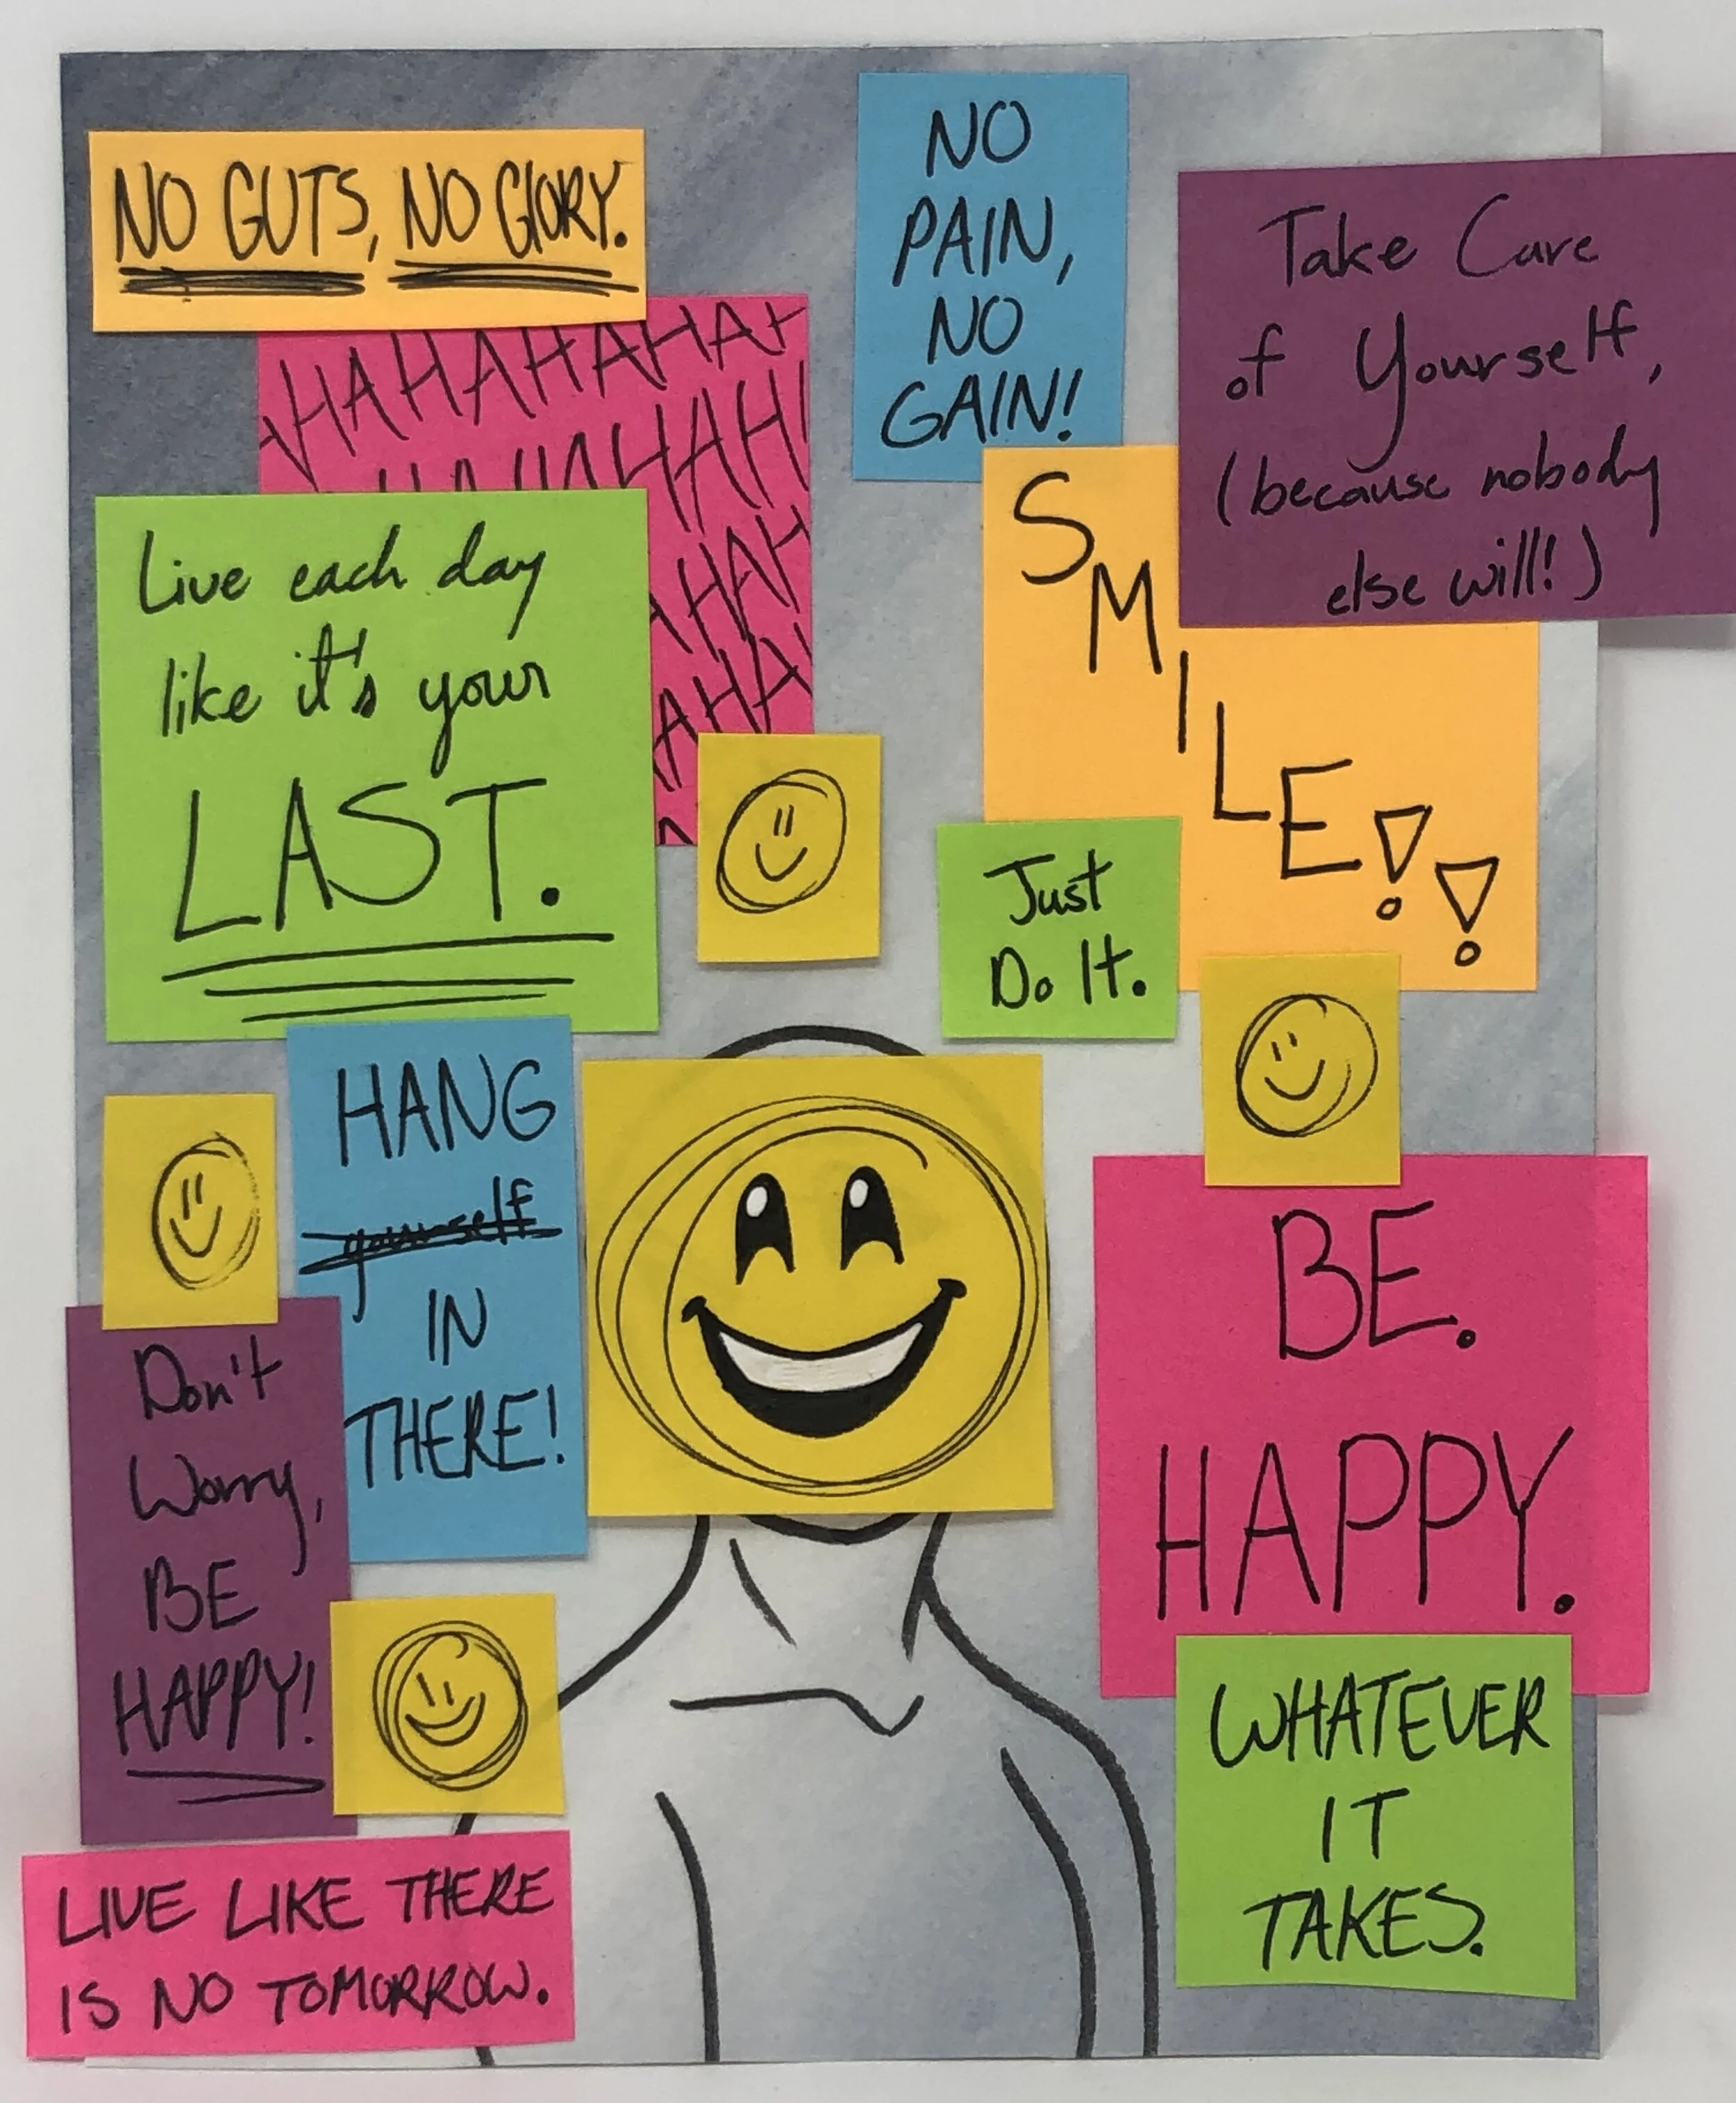 NO GUTS, NO GLORY.
NO
PAIN,
NO
GAIN!
Take Care
of Yourself,
(because nobody
else will!)
HAHAHAHAH
HAHAHAH
HAH
AHA
Live each day
like it's your
LAST.
SMILE!!
Just
Do It.
HANG
yourself
IN
THERE!
BE.
HAPPY.
Don't
Worry,
BE
HAPPY!
WHATEVER
IT
TAKES.
LIVE LIKE THERE
IS NO TOMORROW.